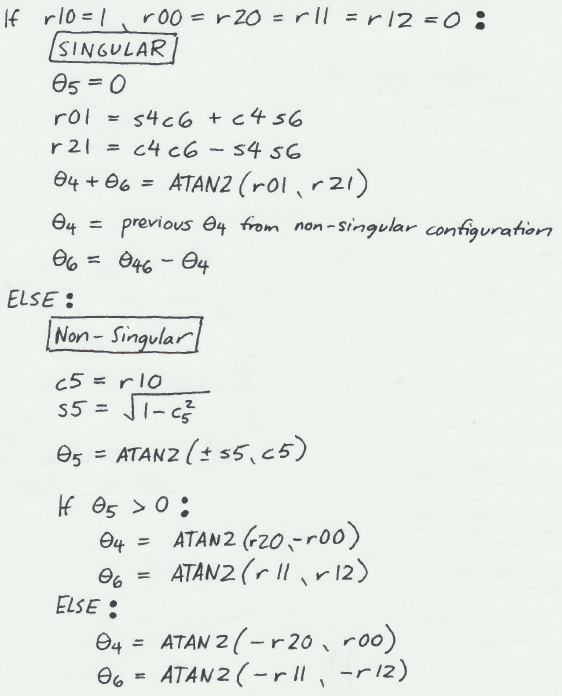 If r10=1, r00 = r20 = r11 = r12 = 0 :
SINGULAR
θ5 = 0
r01 = s4c6 + c4s6
r21 = c4c6 - s4s6
θ4 + θ6 = ATAN2(r01, r21)
θ4 = previous θ4 from non-singular configuration
θ6 = θ46 - θ4
ELSE :
Non-Singular
c5 = r10
s5 = √1-c5²
θ5 = ATAN2(± s5, c5)
If θ5 > 0 :
θ4 = ATAN2(r20, -r00)
θ6 = ATAN2(r11, r12)
ELSE :
θ4 = ATAN2(-r20, r00)
θ6 = ATAN2(-r11, -r12)